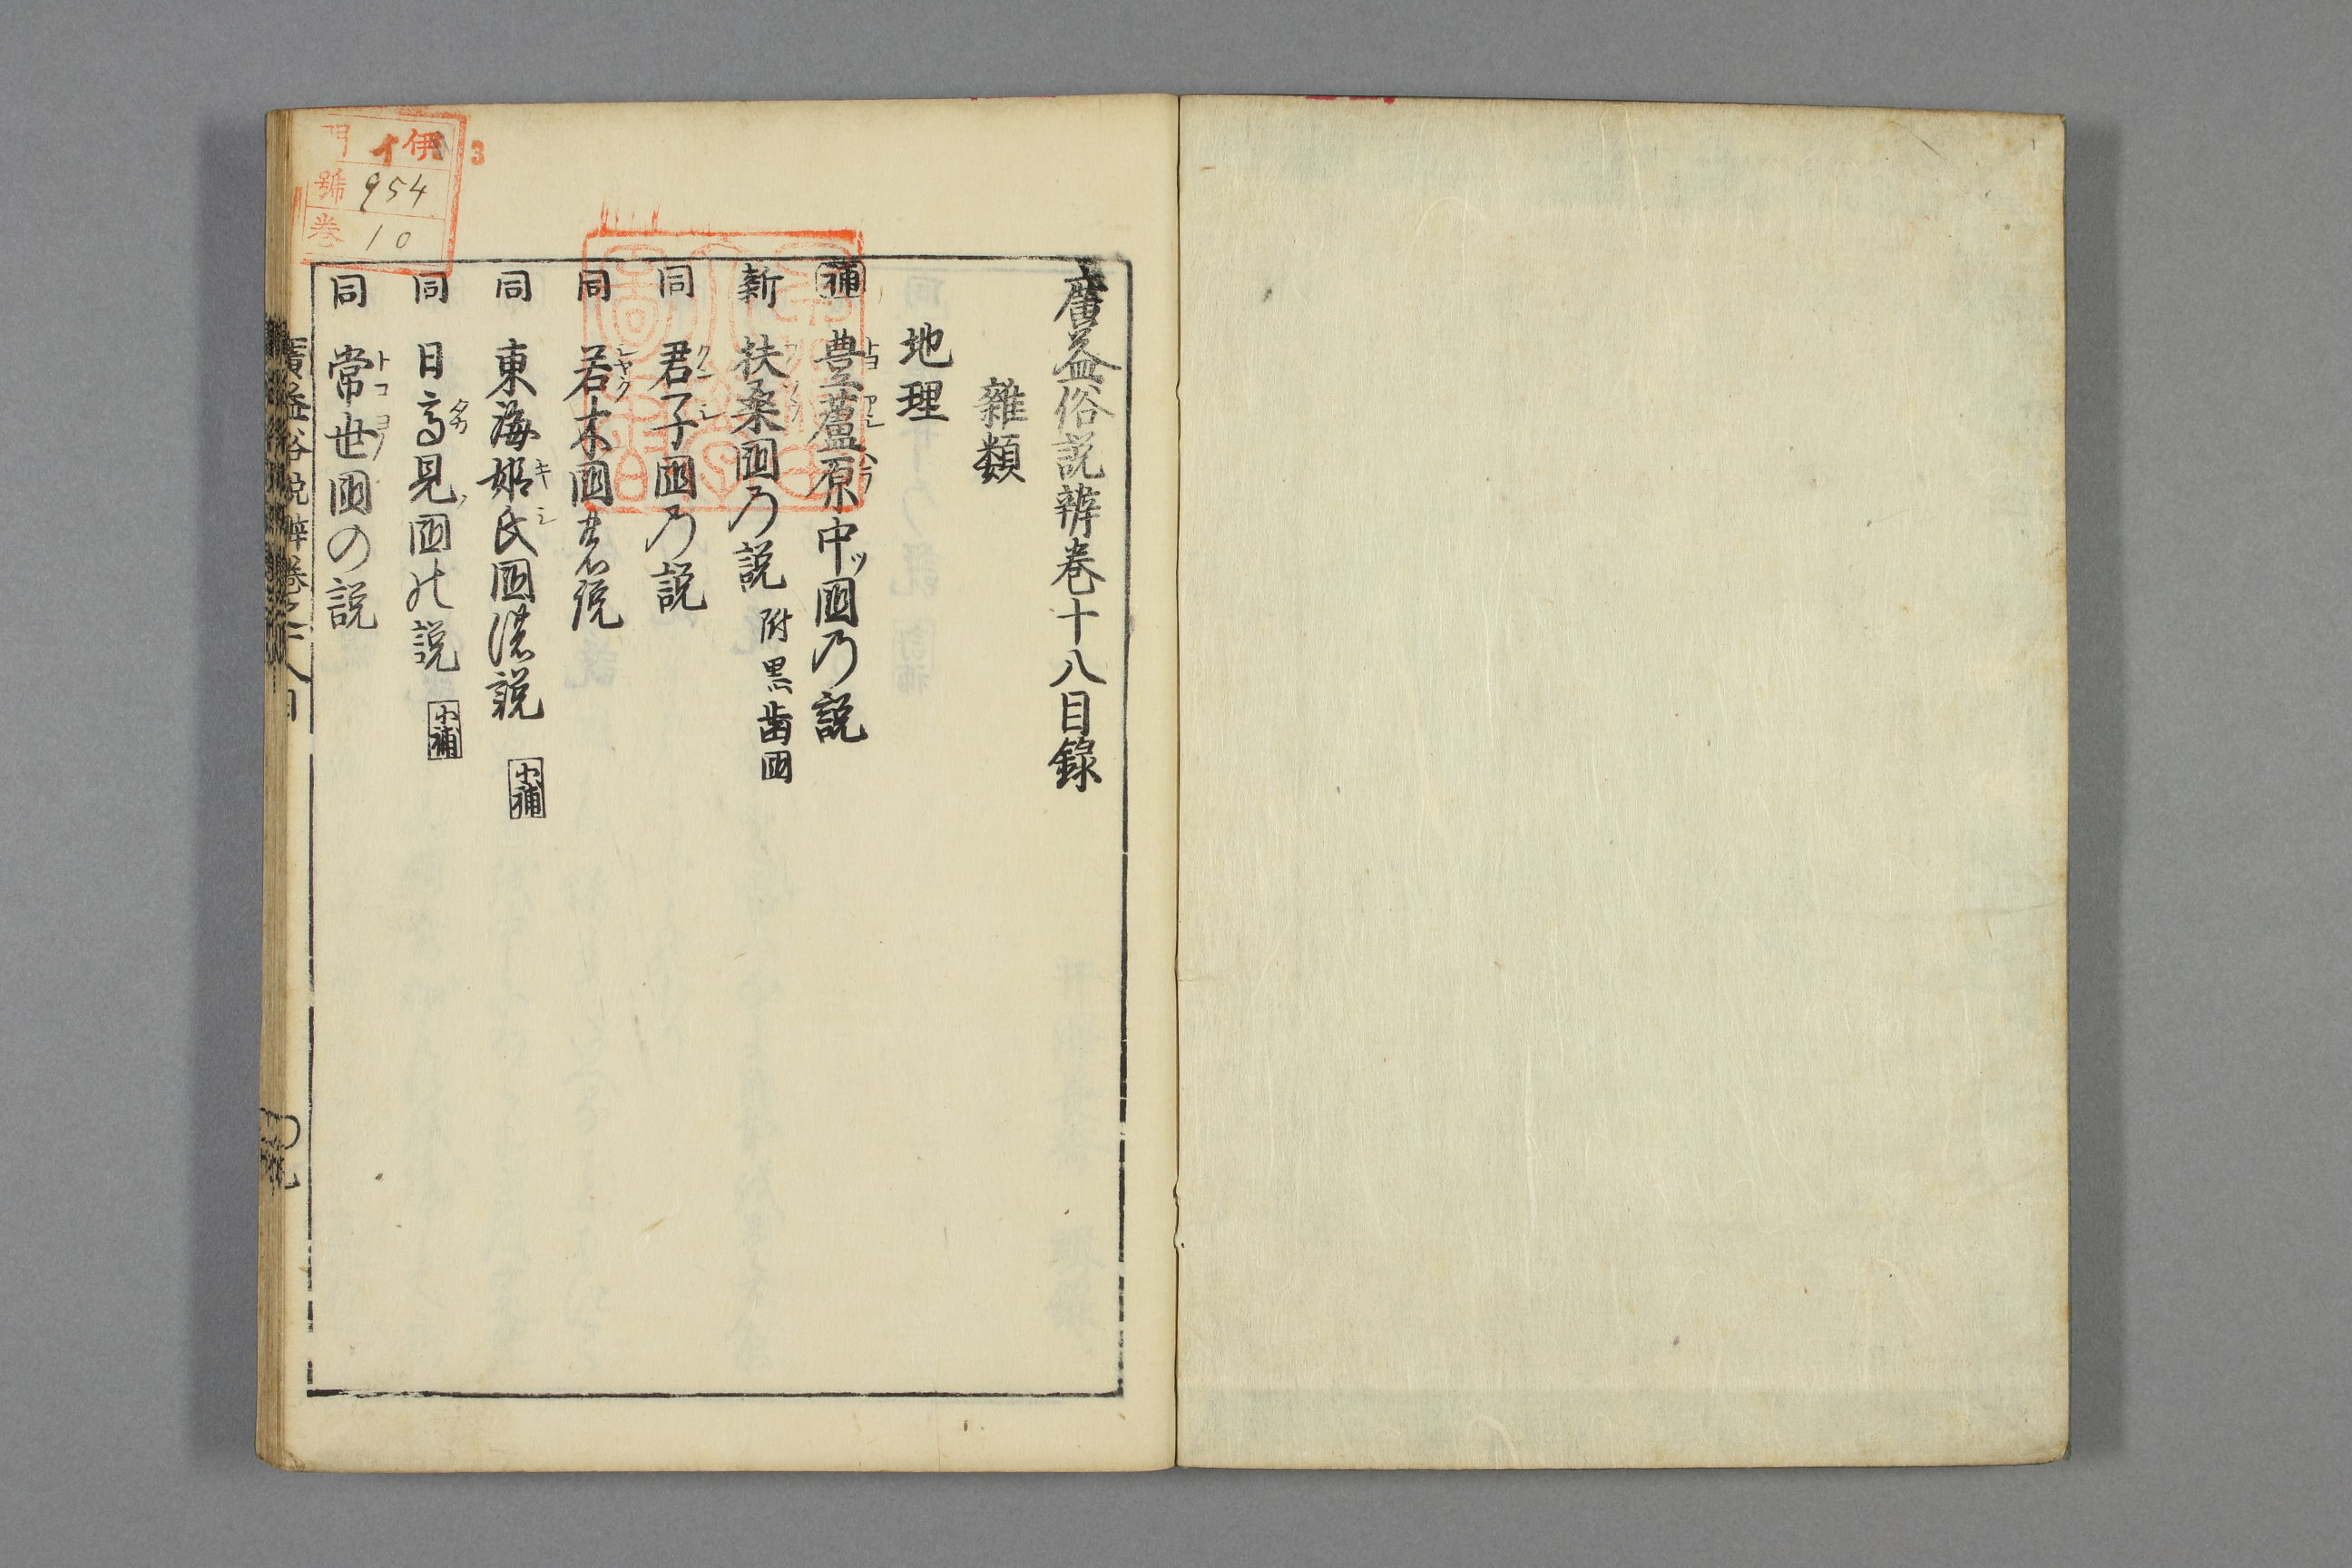 廣益俗説辨巻十八目録
雜類
地理
補 豊蘆原中ッ國乃説
新 扶桑國乃説 附黒歯國
同 君子國乃説
同 若木國の説
同 東海姫氏國の説 小補
同 日高見國の説 小補
同 常世國の説
伊 3
門 イ
號 954
巻 10